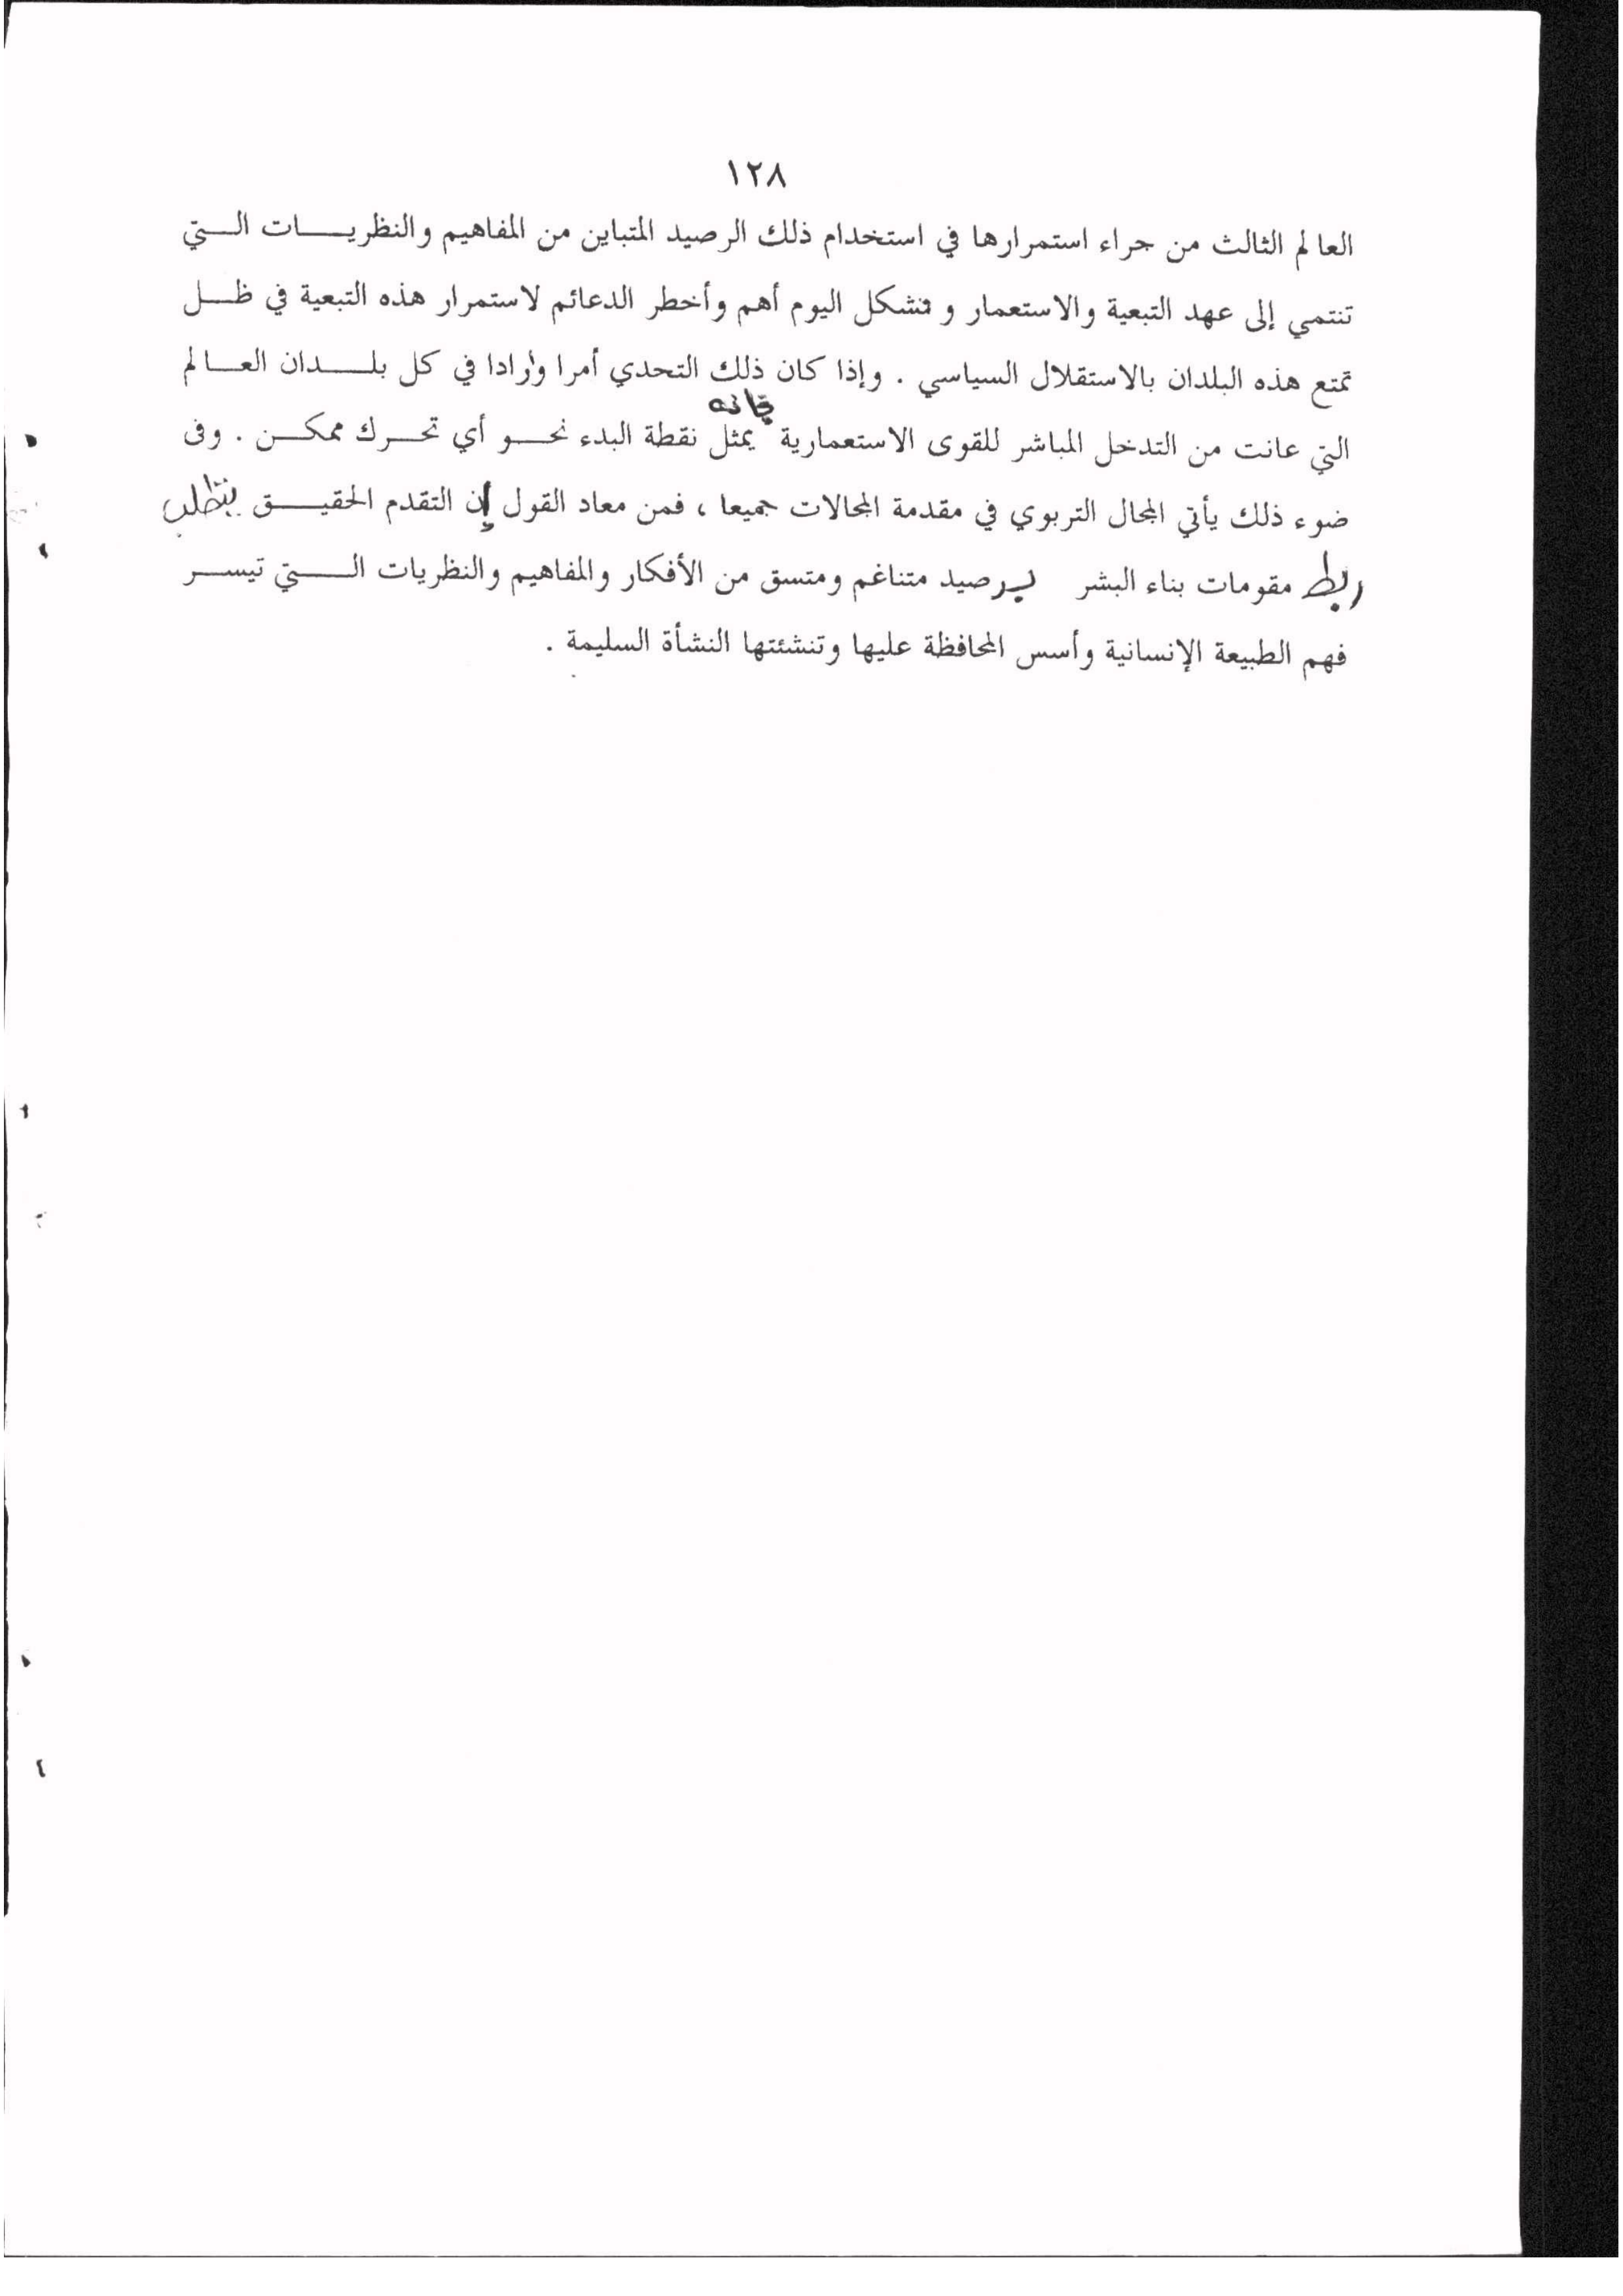 ١٢٨
العالم الثالث من جراء استمرارها في استخدام ذلك الرصيد المتباين من المفاهيم والنظريات التي
تنتمي إلى عهد التبعية والاستعمار وتشكل اليوم أهم وأخطر الدعائم لاستمرار هذه التبعية في ظل
تمتع هذه البلدان بالاستقلال السياسي . وإذا كان ذلك التحدي أمرا وارادا في كل بلدان العالم
التي عانت من التدخل المباشر للقوى الاستعمارية فإنه يمثل نقطة البدء نحو أي تحرك ممكن . وفى
ضوء ذلك يأتي المجال التربوي في مقدمة المجالات جميعا ، فمن معاد القول إن التقدم الحقيق يتطلب
ربط مقومات بناء البشر برصيد متناغم ومتسق من الأفكار والمفاهيم والنظريات التي تيسر
فهم الطبيعة الإنسانية وأسس المحافظة عليها وتنشئتها النشأة السليمة .